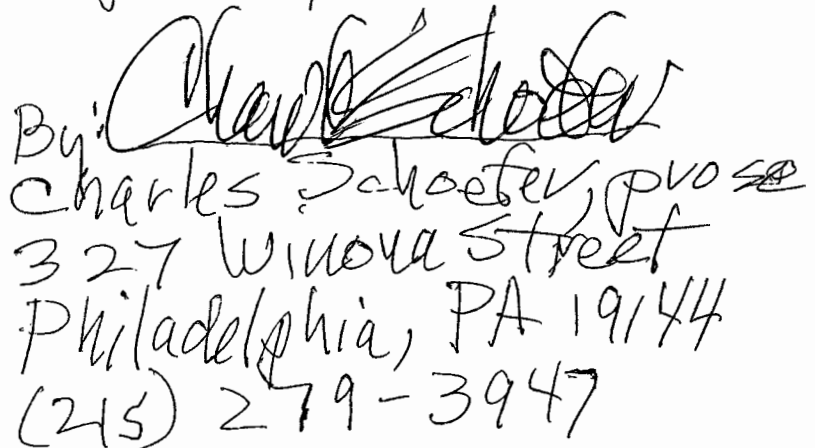 By: Charles Schoefer
Charles Schoefer, pro se
327 Winona Street
Philadelphia, PA 19144
(215) 279-3947